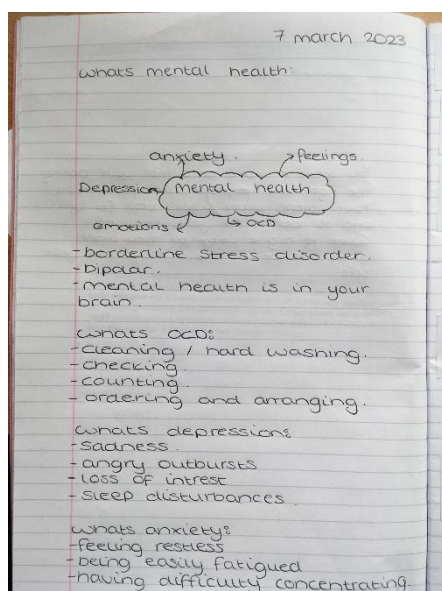 7 march 2023
whats mental health:
anxiety.
feelings.
Depression
mental health
emotions
OCD
- borderline stress disorder.
- bipolar.
- mental health is in your
brain.
whats OCD:
- cleaning / hard washing.
- checking.
- counting.
- ordering and arranging.
whats depression:
- sadness.
- angry outbursts
- loss of intrest
- sleep disturbances.
whats anxiety:
- feeling restless
- being easily fatigued
- having difficulty concentrating.